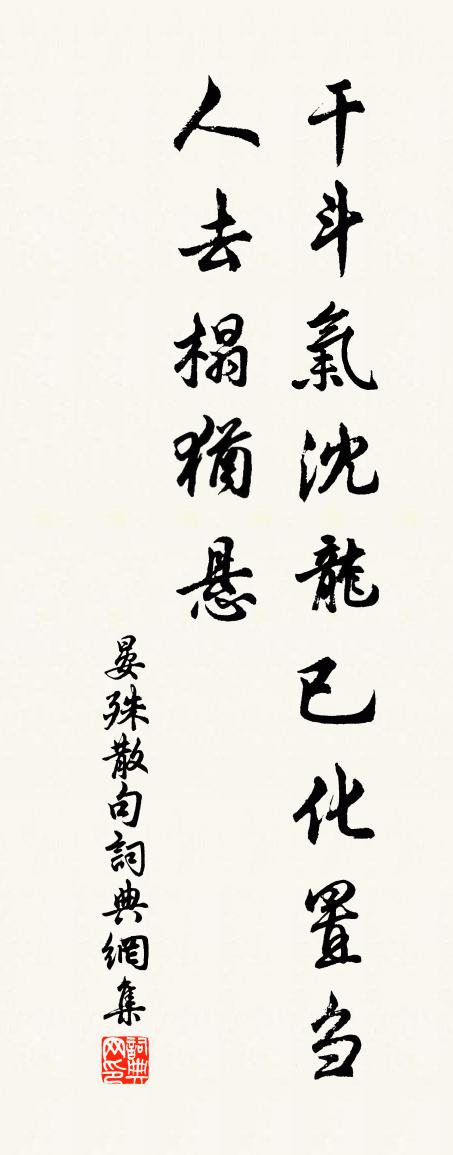 干斗氣沈龍已化置刍
人去榻猶悬
晏殊散句詞典網集
詞典网印